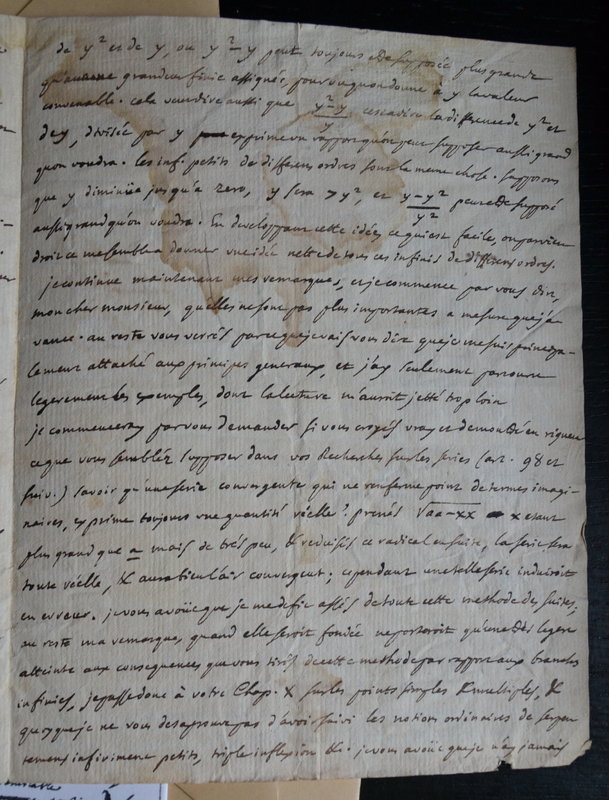 de y² et de y, ou y² - y peut toujours etre supposée plus grande
qu'aucune grandeur finie assignée, pourvu qu'on donne à y la valeur
convenable. cela veut dire aussi que y²-y/y, c'est à dire la difference de y² et
de y, divisée par y exprime un rapport qu'on peut supposer aussi grand
qu'on voudra. les inf. petits de differens ordres sont la meme chose. supposons
que y diminüe jusqu'a zero, y sera > y², et y-y²/y² peut etre supposé
aussi grand qu'on voudra. En developpant cette idée, ce qui est facile, on parvien
droit ce me semble a donner une idée nette de tous ces infinis de differens ordres.
je continue maintenant mes remarques, et je commence par vous dire,
mon cher monsieur, qu'elles ne sont pas plus importantes a mesure que j'a
vance. au reste vous verrés par ce que je vais vous dire que je me suis principa-
lement attaché aux principes generaux, et j'ay seulement parcouru
legerement les exemples, dont la lecture m'auroit jetté trop loin
je commenceray par vous demander si vous croyés vray et demontré en rigueur
ce que vous semblés supposer dans vos Recherches sur les series (art. 98 et
suiv.) savoir qu'une serie convergente qui ne renferme point de termes imagi-
naires, exprime toujours une quantité réelle? prenés √aa-xx x etant
plus grand que a mais de trés peu, & reduisés ce radical en suite, la serie sera
toute réelle, & aura bien l'air convergent; cependant une telle serie induiroit
en erreur. je vous avoüe que je me defie assés de toute cette methode des suites;
au reste ma remarque, quand elle seroit fondée ne porteroit qu'une tres legere
atteinte aux consequences que vous tirés de cette methode par rapport aux branches
infinies, je passe donc à votre Chap. X sur les points simples & multiples, &
quoyque je ne vous desaprouve pas d'avoir suivi les notions ordinaires de serpen
temens infiniment petits, triple inflexion &c. je vous avoüe que je n'ay jamais